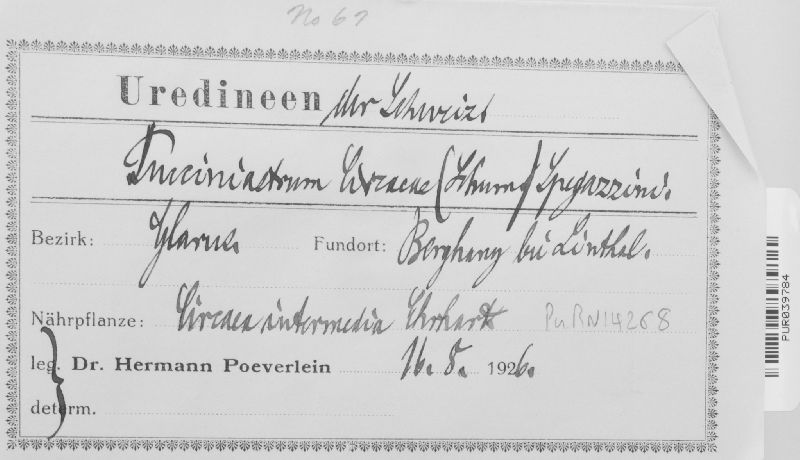 No 67
Uredineen der Schweiz.
Pucciniastrum Circaeae (Schum.) Spegazzini.
Bezirk: Glarus. Fundort: Berghang bei Linthal.
Nährpflanze: Circaea intermedia Ehrhart PuRN14268
leg. Dr. Hermann Poeverlein 16. 8. 1926.
determ.
PUR039784